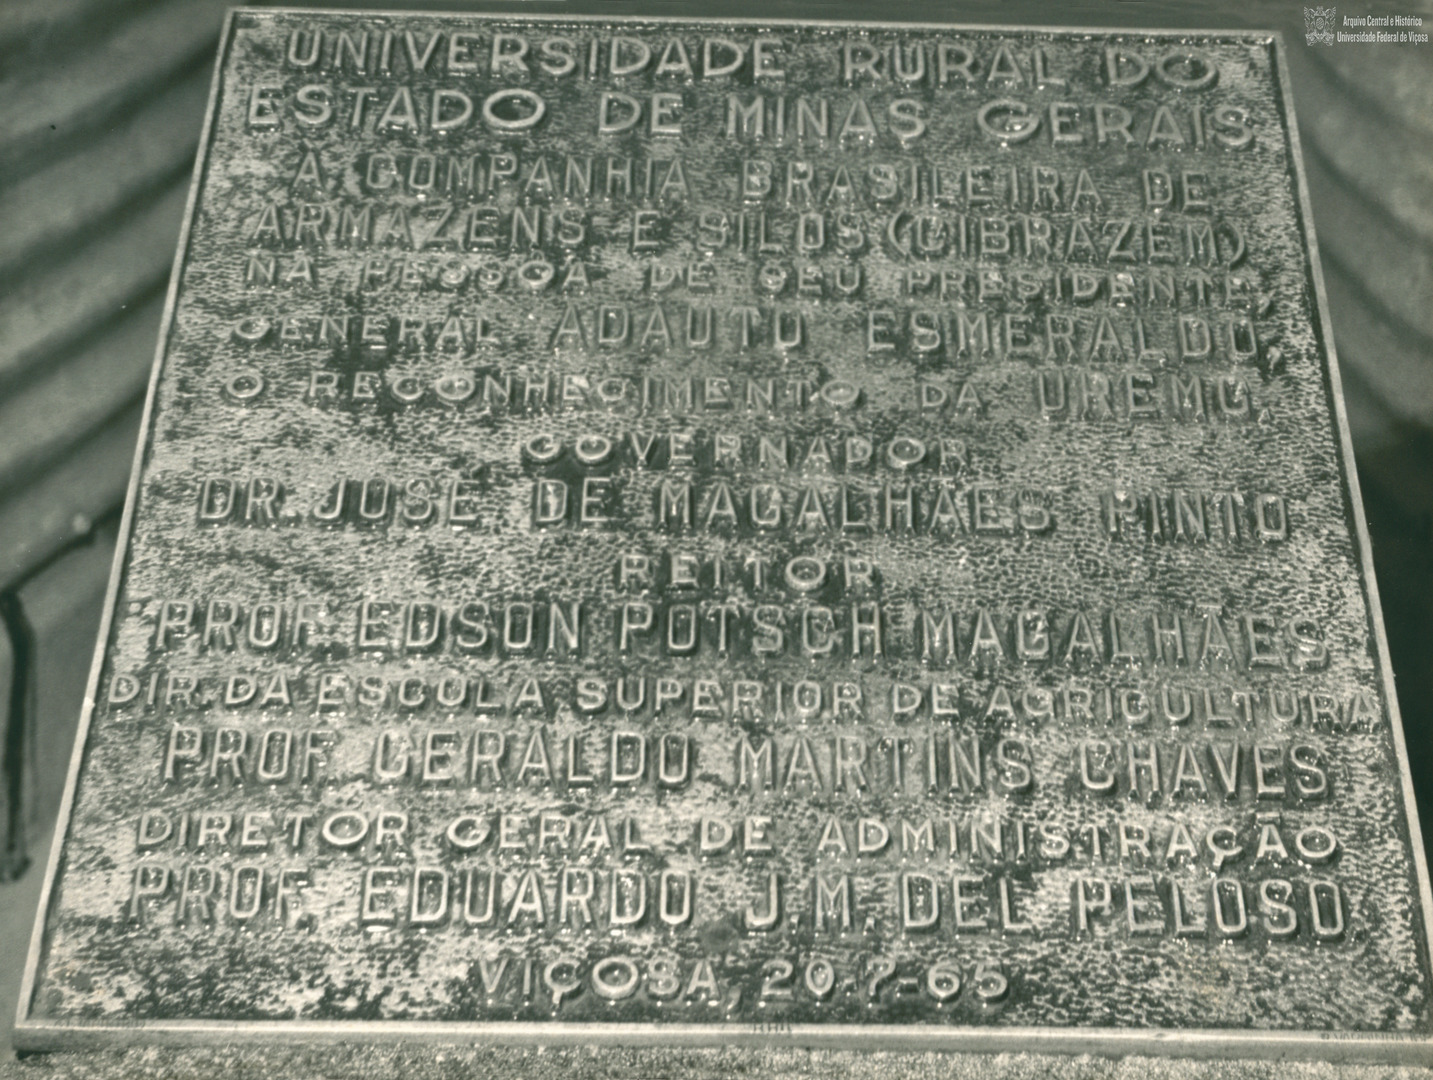 Arquivo Central e Histórico
Universidade Federal de Viçosa
UNIVERSIDADE RURAL DO
ESTADO DE MINAS GERAIS
À COMPANHIA BRASILEIRA DE
ARMAZENS E SILOS (CIBRAZEM)
NA PESSOA DE SEU PRESIDENTE,
GENERAL ADAUTO ESMERALDO,
O RECONHECIMENTO DA UREMG.
GOVERNADOR
DR. JOSE DE MAGALHÃES PINTO
REITOR
PROF. EDSON POTSCH MAGALHÃES
DIR. DA ESCOLA SUPERIOR DE AGRICULTURA
PROF. GERALDO MARTINS CHAVES
DIRETOR GERAL DE ADMINISTRAÇÃO
PROF. EDUARDO J. M. DEL PELOSO
VIÇOSA, 20-7-65